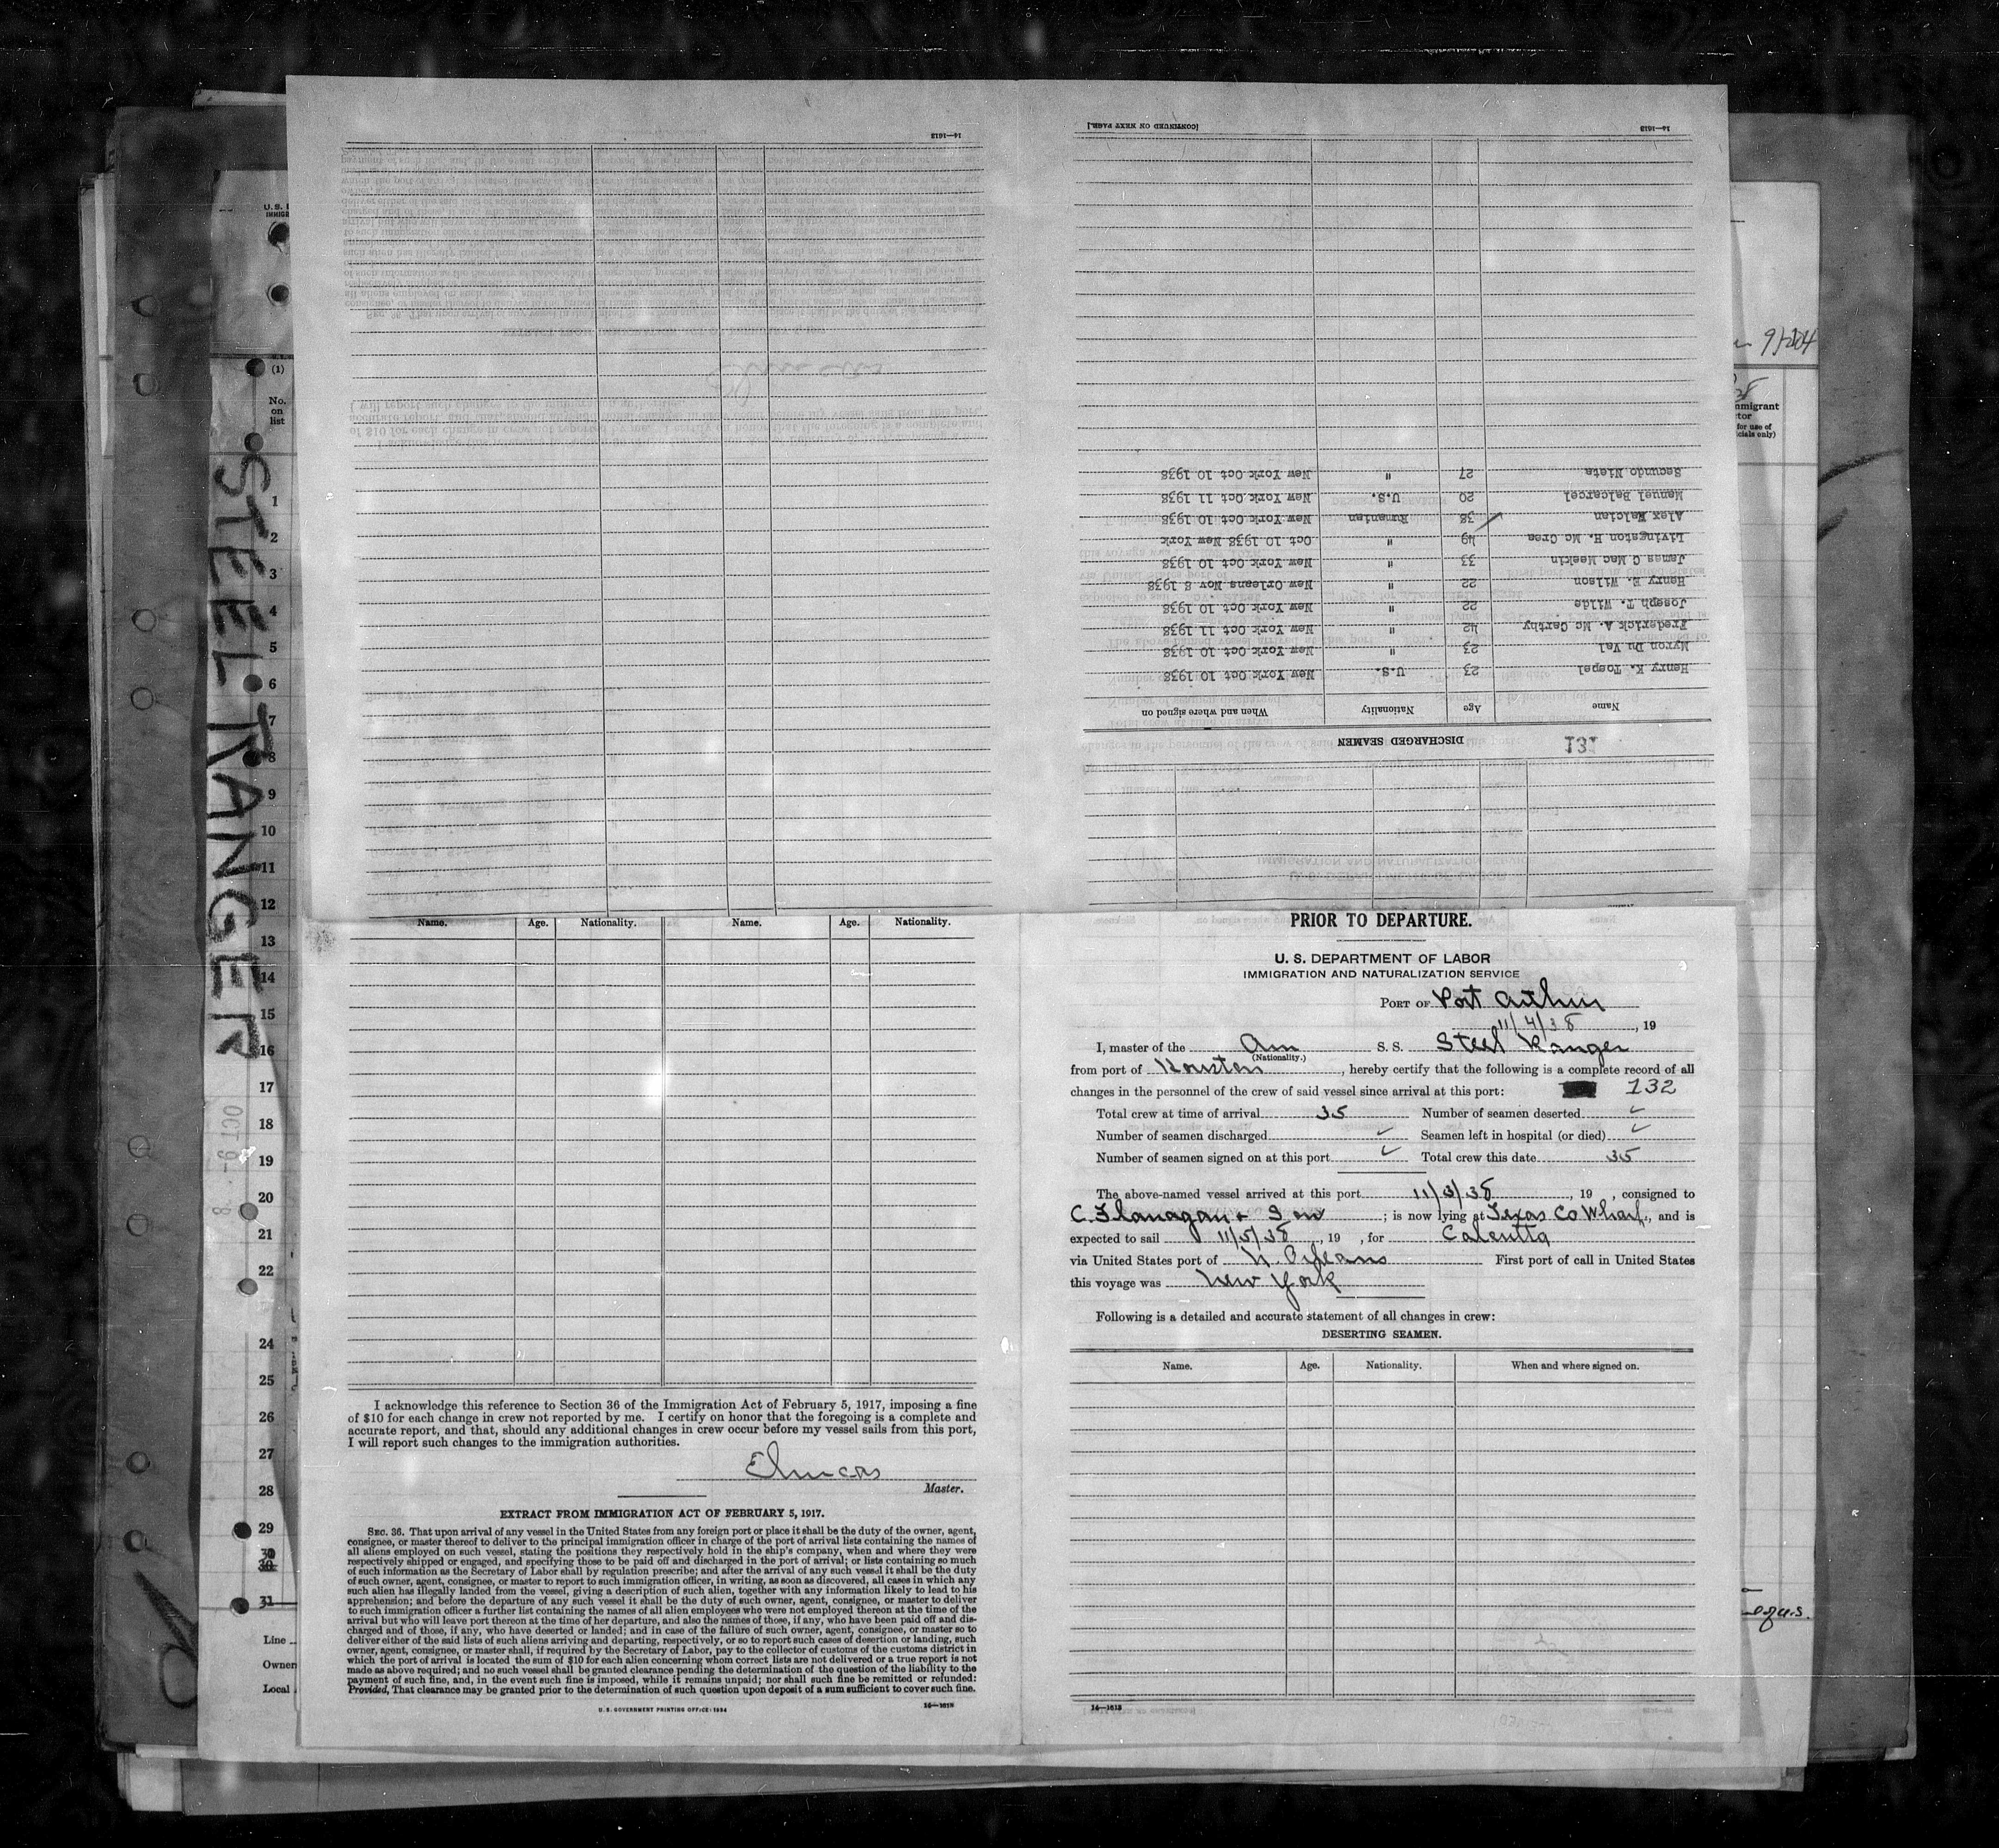 STEEL RANGER
OCT 9- 8
U. S.
(1)
No.
on
list
1
2
3
4
5
6
7
8
9
10
11
12
13
14
15
16
17
18
19
20
21
22
24
25
26
27
28
29
30
31
Line
Owner
Local
mmigrant
tor
for use of
cials only)
14—1613
[CONTINUED ON NEXT PAGE.]
14—1613
131
DISCHARGED SEAMEN
Name Age Nationality When and where signed on
Henry K. Toepel 23 U.S. New York Oct 10 1938
Myron Du Val 23 " New York Oct 10 1938
Frederick A. Mc Carthy 42 " New York Oct 11 1938
Joseph T. Wilde 22 " New York Oct 10 1938
Henry E. Wilson 22 " New Orleans Nov 8 1938
James C Mac Meekin 33 " New York Oct 10 1938
Livingston H. Mc Crea 49 " Oct 10 1938 New York
Alex Halcian 38 Rumanian New York Oct 10 1938
Manuel Balcarcel 20 U.S. New York Oct 11 1938
Secundo Nieta 27 " New York Oct 10 1938
Name. Age. Nationality. Name. Age. Nationality.
I acknowledge this reference to Section 36 of the Immigration Act of February 5, 1917, imposing a fine
of $10 for each change in crew not reported by me. I certify on honor that the foregoing is a complete and
accurate report, and that, should any additional changes in crew occur before my vessel sails from this port,
I will report such changes to the immigration authorities.
Master.
EXTRACT FROM IMMIGRATION ACT OF FEBRUARY 5, 1917.
SEC. 36. That upon arrival of any vessel in the United States from any foreign port or place it shall be the duty of the owner, agent,
consignee, or master thereof to deliver to the principal immigration officer in charge of the port of arrival lists containing the names of
all aliens employed on such vessel, stating the positions they respectively hold in the ship's company, when and where they were
respectively shipped or engaged, and specifying those to be paid off and discharged in the port of arrival; or lists containing so much
of such information as the Secretary of Labor shall by regulation prescribe; and after the arrival of any such vessel it shall be the duty
of such owner, agent, consignee, or master to report to such immigration officer, in writing, as soon as discovered, all cases in which any
such alien has illegally landed from the vessel, giving a description of such alien, together with any information likely to lead to his
apprehension; and before the departure of any such vessel it shall be the duty of such owner, agent, consignee, or master to deliver
to such immigration officer a further list containing the names of all alien employees who were not employed thereon at the time of the
arrival but who will leave port thereon at the time of her departure, and also the names of those, if any, who have been paid off and dis-
charged and of those, if any, who have deserted or landed; and in case of the failure of such owner, agent, consignee, or master so to
deliver either of the said lists of such aliens arriving and departing, respectively, or so to report such cases of desertion or landing, such
owner, agent, consignee, or master shall, if required by the Secretary of Labor, pay to the collector of customs of the customs district in
which the port of arrival is located the sum of $10 for each alien concerning whom correct lists are not delivered or a true report is not
made as above required; and no such vessel shall be granted clearance pending the determination of the question of the liability to the
payment of such fine, and, in the event such fine is imposed, while it remains unpaid; nor shall such fine be remitted or refunded:
Provided, That clearance may be granted prior to the determination of such question upon deposit of a sum sufficient to cover such fine.
U. S. GOVERNMENT PRINTING OFFICE: 1934 14—1613
PRIOR TO DEPARTURE.
U. S. DEPARTMENT OF LABOR
IMMIGRATION AND NATURALIZATION SERVICE
PORT OF Port Arthur
11/4/38, 19
I, master of the Am S. S. Steel Ranger
(Nationality.)
from port of Houston, hereby certify that the following is a complete record of all
changes in the personnel of the crew of said vessel since arrival at this port: 132
Total crew at time of arrival 35 Number of seamen deserted ✓
Number of seamen discharged ✓ Seamen left in hospital (or died) ✓
Number of seamen signed on at this port ✓ Total crew this date 35
The above-named vessel arrived at this port 11/3/38, 19 , consigned to
C. Flanagan + Son; is now lying at Texas Co Wharf, and is
expected to sail 11/5/38, 19 , for Calcutta
via United States port of N. Orleans First port of call in United States
this voyage was New York
Following is a detailed and accurate statement of all changes in crew:
DESERTING SEAMEN.
Name. Age. Nationality. When and where signed on.
14—1613